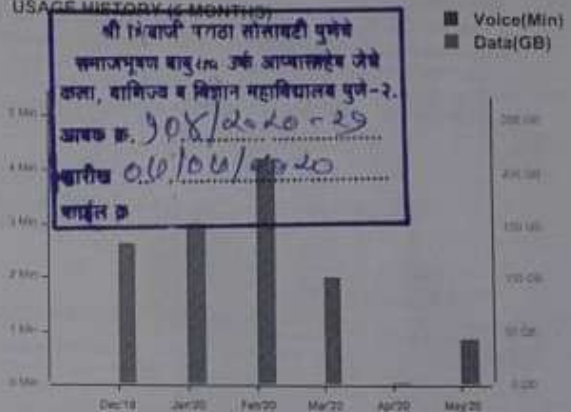 USAGE HISTORY (6 MONTHS)
Voice(Min)
Data(GB)
श्री शिवाजी मराठा सोसायटी पुणेचे
समाजभूषण बाबुराव उर्फ आप्पासाहेब जेधे
कला, वाणिज्य व विज्ञान महाविद्यालय पुणे-२.
आवक क्र. १०४/२०२०-२१
तारीख
फाईल क्र
5 Min
4 Min
3 Min
2 Min
1 Min
0 Min
200 GB
150 GB
100 GB
50 GB
0 GB
Dec'19 Jan'20 Feb'20 Mar'20 Apr'20 May'20